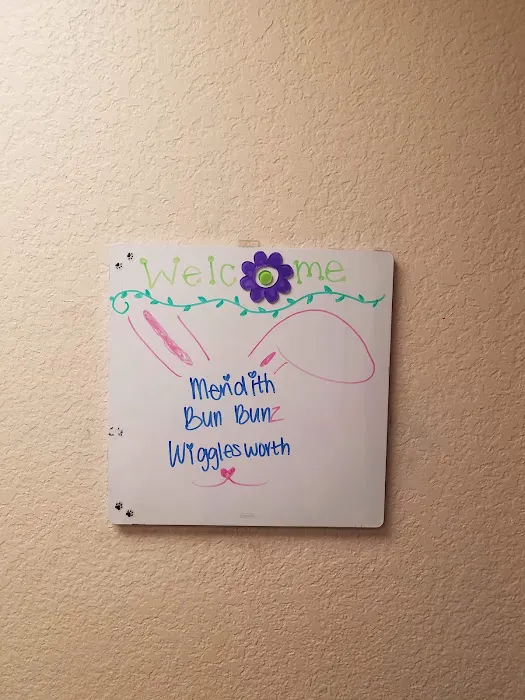 Welcome
Meridith
Bun Bunz
Wigglesworth